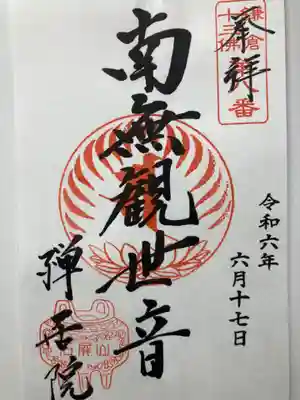 鎌倉
十三佛
番
奉拝
令和六年
六月十七日
南無觀世音
禅居院